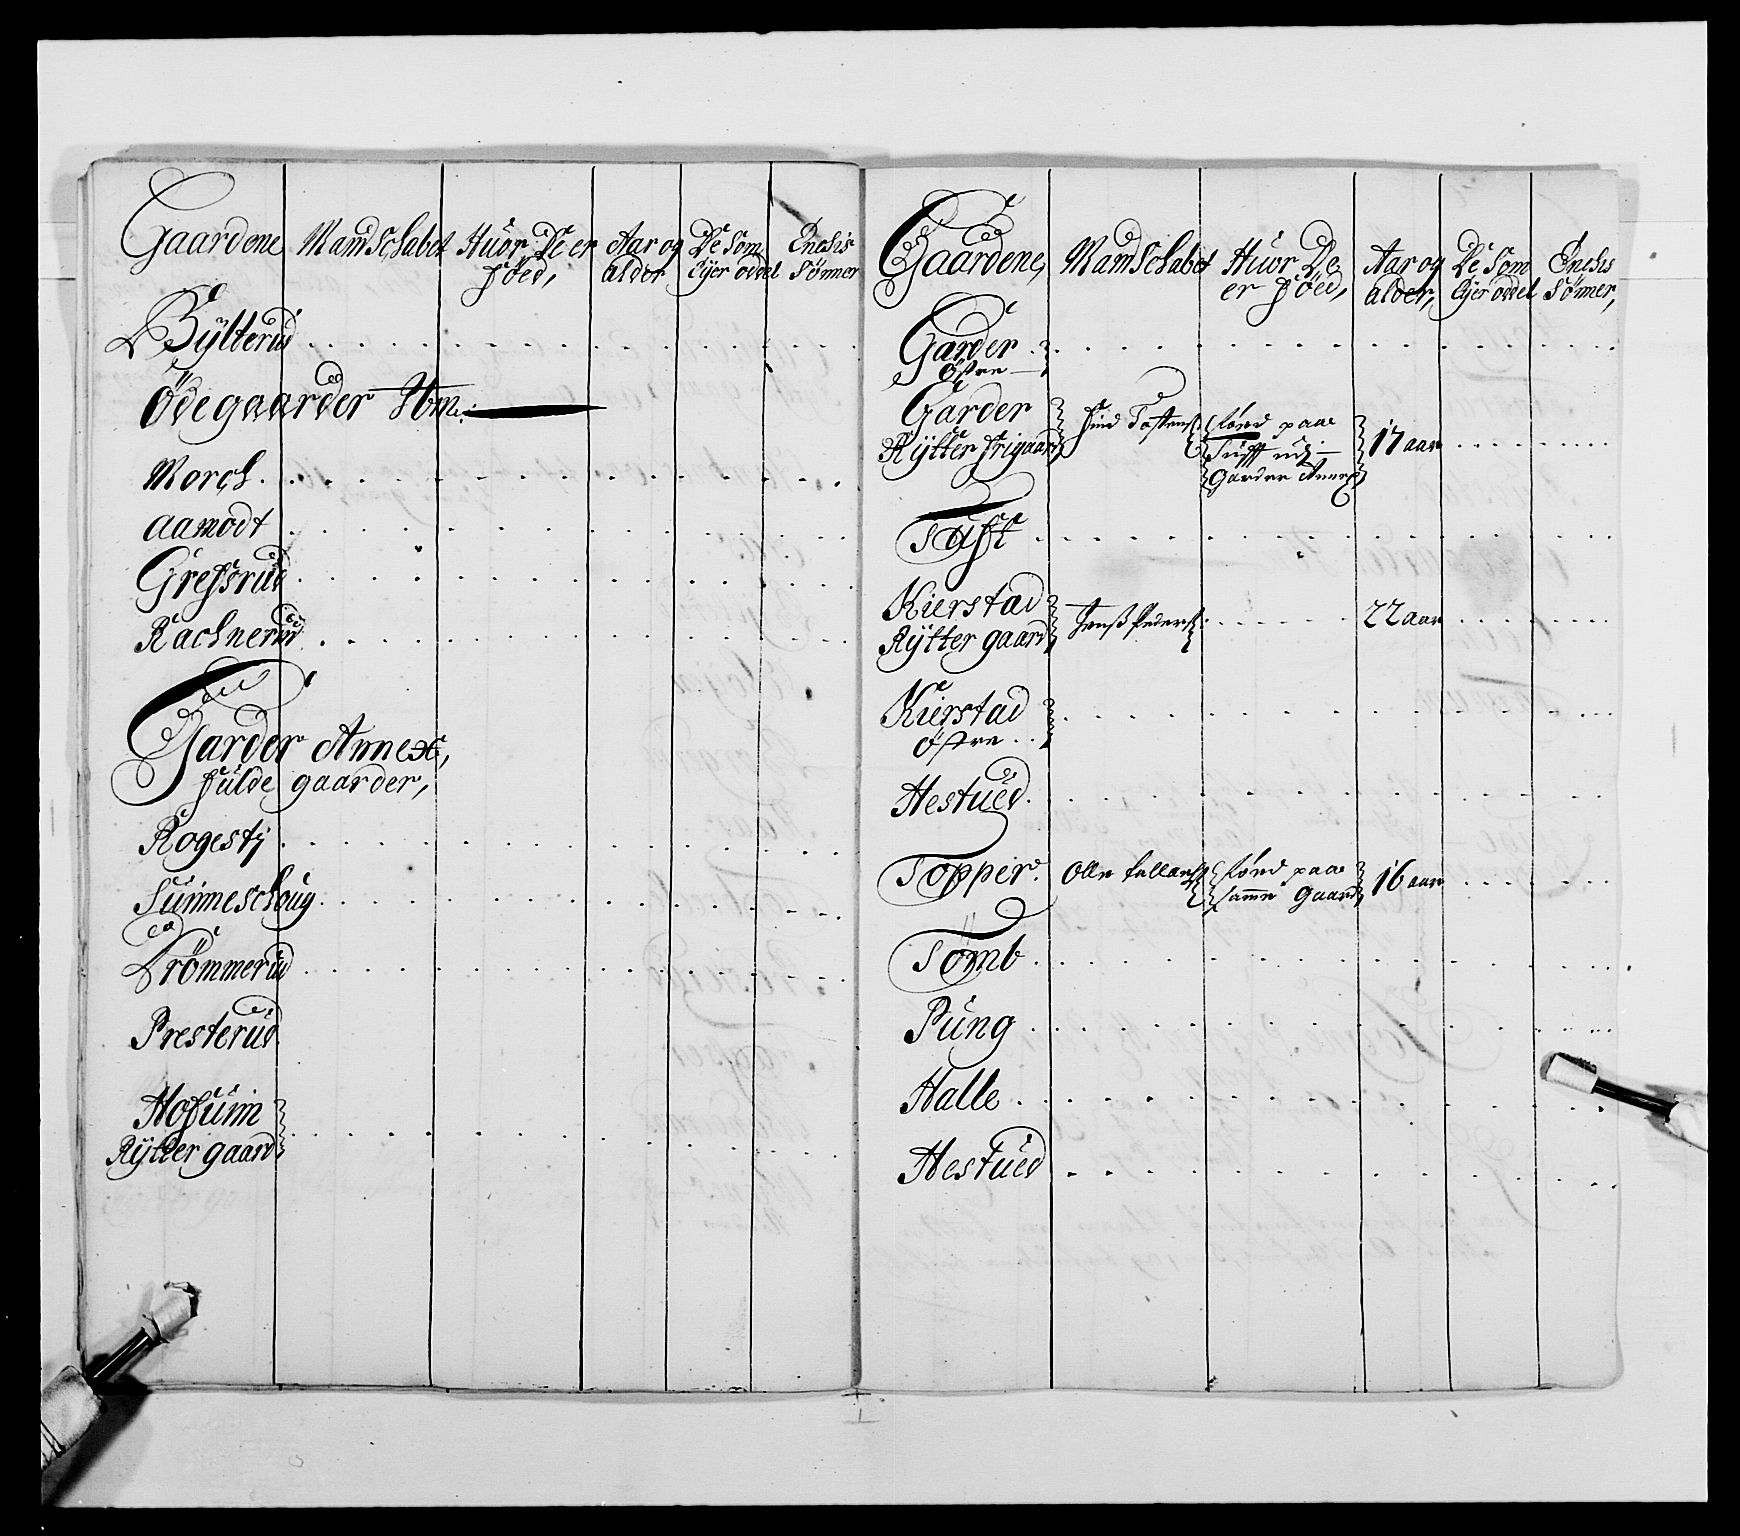 Gaardene
Mandschabet
Huor De er
föed,
Aar og
alder
De som
Eyer oddel
Enchis
Sönner
Bÿlterud
Ödegaarder Ibm:
Morch
Aamodt
Gressrud
Rachnerud
Garder Annex,
fülde gaarder,
Rogestj
Sünneschoug
Drömmerud
Presterüd
Hofüim
Rÿtter gaard
Gaardene,
Mandschabet
Huor De
er föed,
Aar og
alder,
De som
Eyer oddel
Enchs
Sönner,
Garder
Østre
Garder
Rÿtter frigaard
Tostens:
föed paa
Garder Annex
17 aar
Tüft
Kierstad
Rÿtter gaard
Jenss Peders:
22 aar
Kierstad
Østre
Hestüed
Topper
Olle
föed paa
samme Gaard
16 aar
Tömb
Püng
Halle
Hestüed